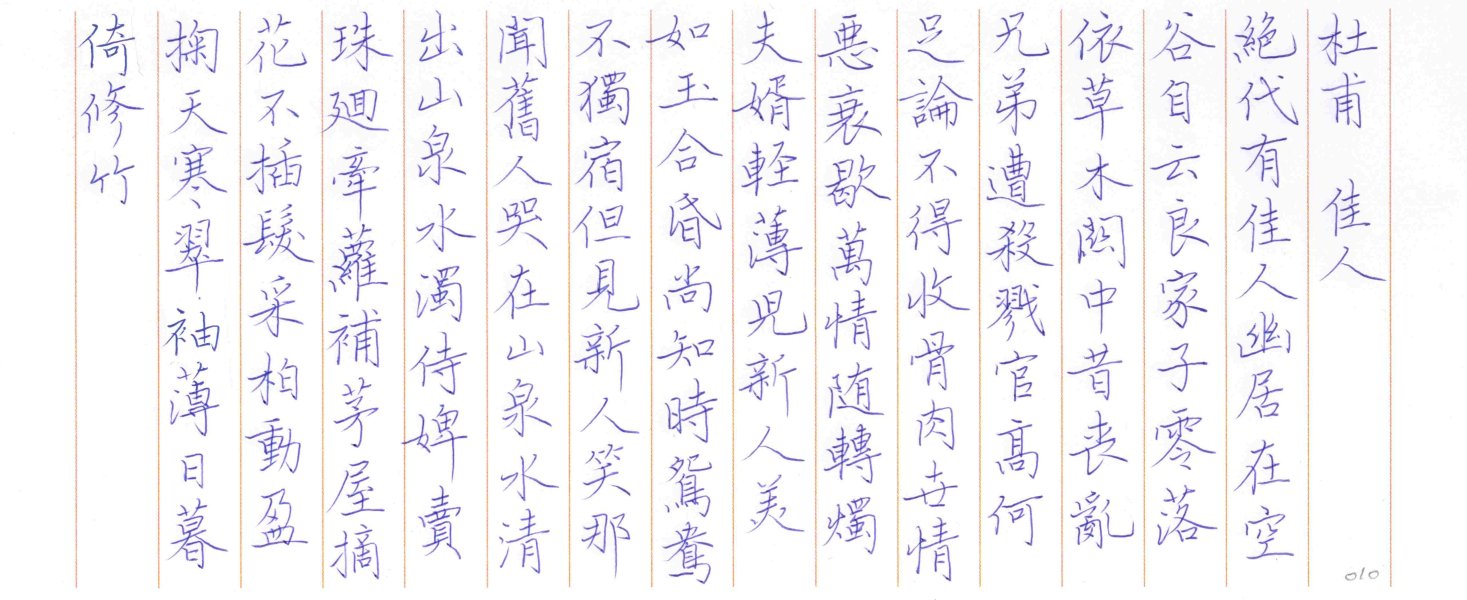 杜甫 佳人
絕代有佳人幽居在空
谷自云良家子零落
依草木關中昔丧亂
兄弟遭殺戮官高何
足論不得收骨肉世情
惡衰歇萬情随轉燭
夫婿輕薄兒新人美
如玉合昏尚知時鴛鴦
不獨宿但見新人笑那
聞舊人哭在山泉水清
出山泉水濁侍婢賣
珠廻牽蘿補茅屋摘
花不插髮采柏動盈
掬天寒翠袖薄日暮
倚修竹
010